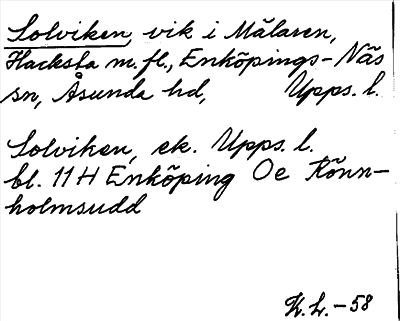 Solviken, vik i Mälaren,
Hacksta m.fl., Enköpings-Näs
sn, Åsunda hd, Upps. l.
Solviken, ek. Upps. l.
bl. 11 H Enköping Oe Rönn-
holmsudd
K.L. -58